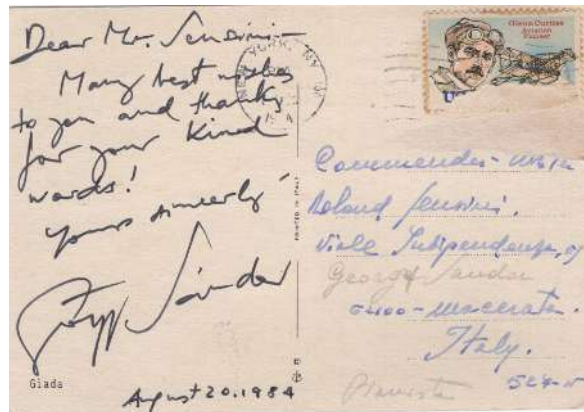 Dear Mr. Sensini -
Many best wishes
to you and thanks
for your kind
words!
Yours sincerely
György Sándor
Giada
August 20. 1984
PRINTED IN ITALY
NEW YORK, NY
Glenn Curtiss
Aviation
Pioneer
Roland Sensini.
Viale Indipendenza,
George Sandor
Macerata.
Italy.
Pianista